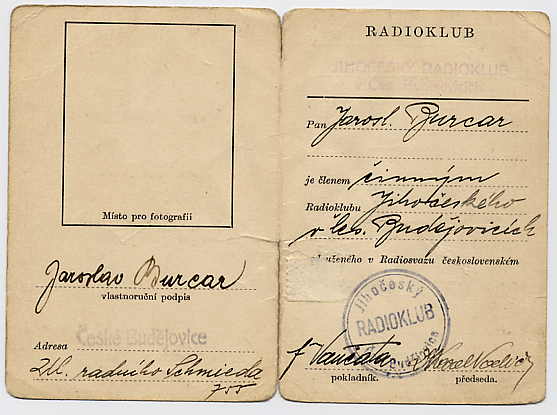 Místo pro fotografii
Jaroslav Burcar
vlastnoruční podpis
Adresa
České Budějovice
Ul. radního Schmieda
755
RADIOKLUB
JIHOČESKÝ RADIOKLUB
v Čes. Budějovicích
Pan Jarosl. Burcar
je členem činným
Radioklubu Jihočeského
v Čes. Budějovicích
sdruženého v Radiosvazu československém
Jihočeský
RADIOKLUB
Budějovice
pokladník.
předseda.